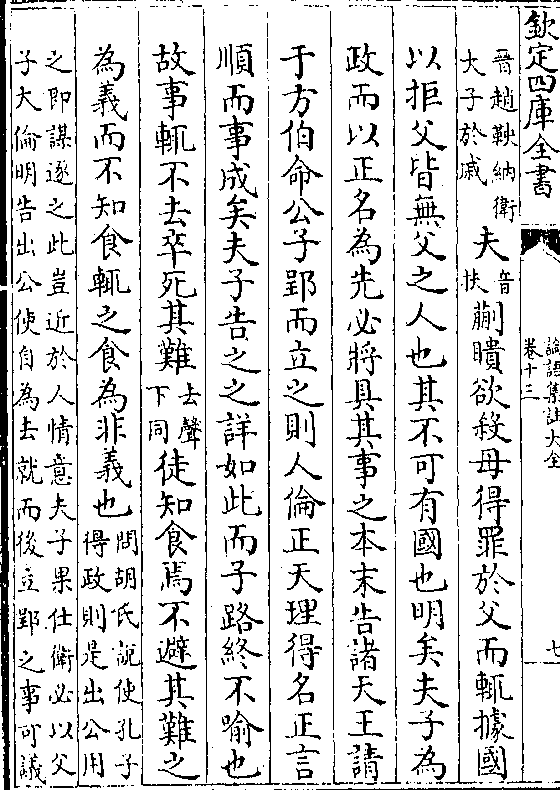 欽定四庫全書
論語集註大全
卷十三
七
晉趙鞅納衛
大子於戚
夫
音
扶
蒯聵欲殺母得罪於父而輒據國
以拒父皆無父之人也其不可有國也明矣夫子為
政而以正名為先必將具其事之本末告諸天王請
于方伯命公子郢而立之則人倫正天理得名正言
順而事成矣夫子告之之詳如此而子路終不喻也
故事輒不去卒死其難
去聲
下同
徒知食焉不避其難之
為義而不知食輒之食為非義也
問胡氏說使孔子
得政則是出公用
之即謀逐之此豈近於人情意夫子果仕衛必以父
子大倫明告出公使自為去就而後立郢之事可議